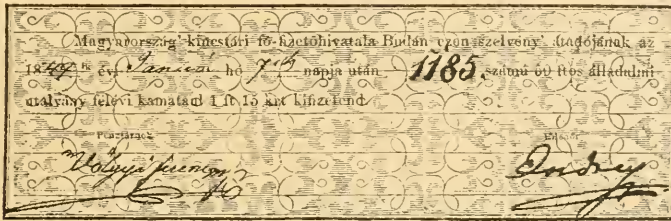 Magyarország' kincstári fő-fizetőhivatala Budán ezen szelvény' átadójának az
1849ik évi Januar hó 7ik napja után 1185. számú 50 ftos álladalmi
utalvány félévi kamatául 1 ft 15 krt kifizetend.
Pénztárnok
Ellenőr